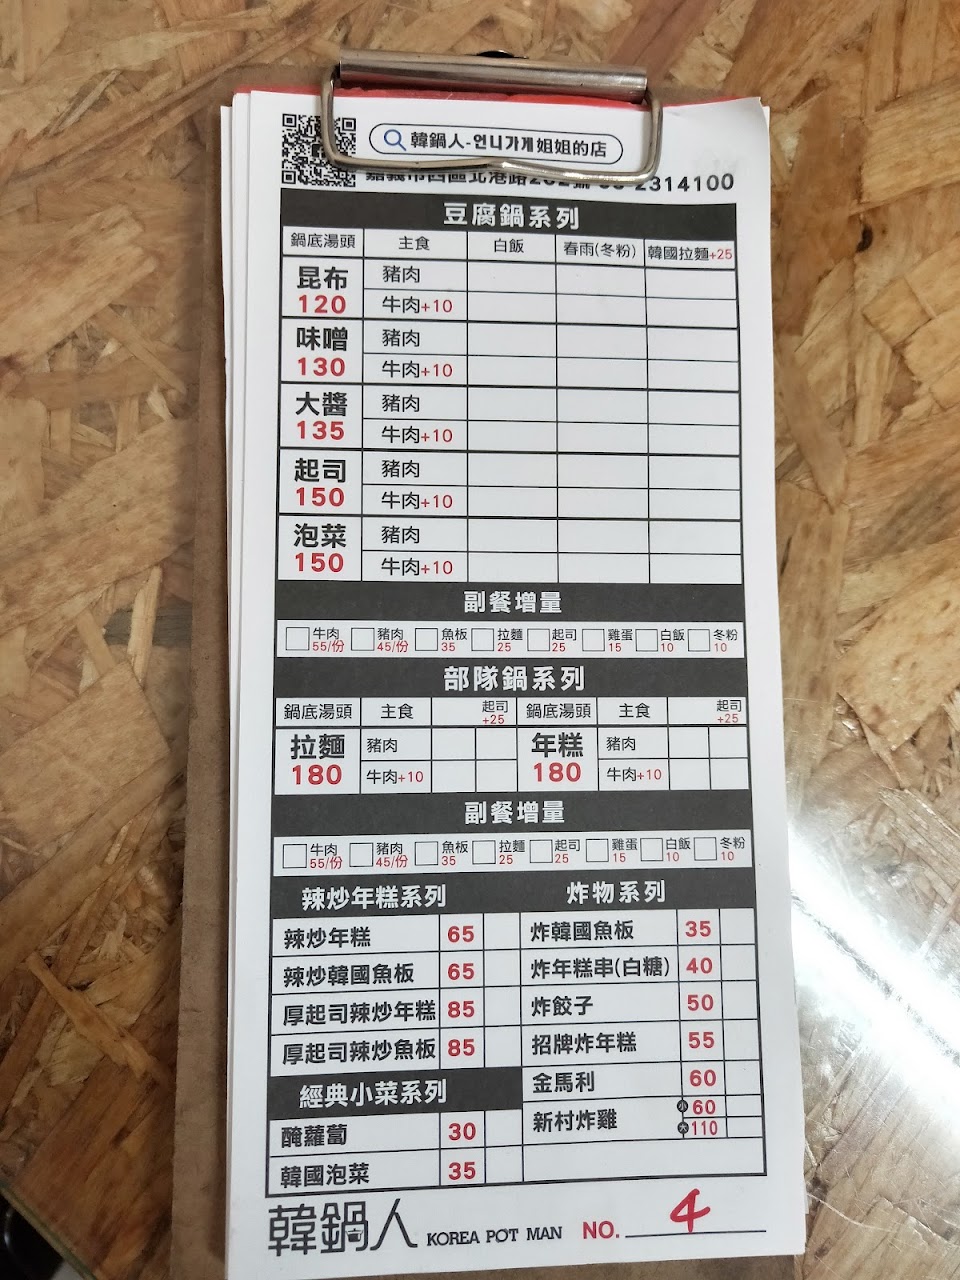 韓鍋人-언니가게姐姐的店
2314100
豆腐鍋系列
鍋底湯頭 主食 白飯 春雨(冬粉) 韓國拉麵+25
昆布 豬肉
120 牛肉+10
味噌 豬肉
130 牛肉+10
大醬 豬肉
135 牛肉+10
起司 豬肉
150 牛肉+10
泡菜 豬肉
150 牛肉+10
副餐增量
牛肉 豬肉 魚板 拉麵 起司 雞蛋 白飯 冬粉
55/份 45/份 35 25 25 15 10 10
部隊鍋系列
鍋底湯頭 主食 起司 鍋底湯頭 主食 起司
+25 +25
拉麵 豬肉 年糕 豬肉
180 牛肉+10 180 牛肉+10
副餐增量
牛肉 豬肉 魚板 拉麵 起司 雞蛋 白飯 冬粉
55/份 45/份 35 25 25 15 10 10
辣炒年糕系列
辣炒年糕 65
辣炒韓國魚板 65
厚起司辣炒年糕 85
厚起司辣炒魚板 85
經典小菜系列
醃蘿蔔 30
韓國泡菜 35
炸物系列
炸韓國魚板 35
炸年糕串(白糖) 40
炸餃子 50
招牌炸年糕 55
金馬利 60
新村炸雞 小 60
大 110
韓鍋人 KOREA POT MAN NO. 4